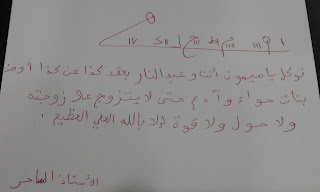 توكل يا ميمون أنت وعبد النار بعقد كذا عن كذا أو من
بنات حواء وآدم حتى لا يتزوج على زوجته
ولا حول ولا قوة إلا بالله العلي العظيم
الأستاذ الساحر